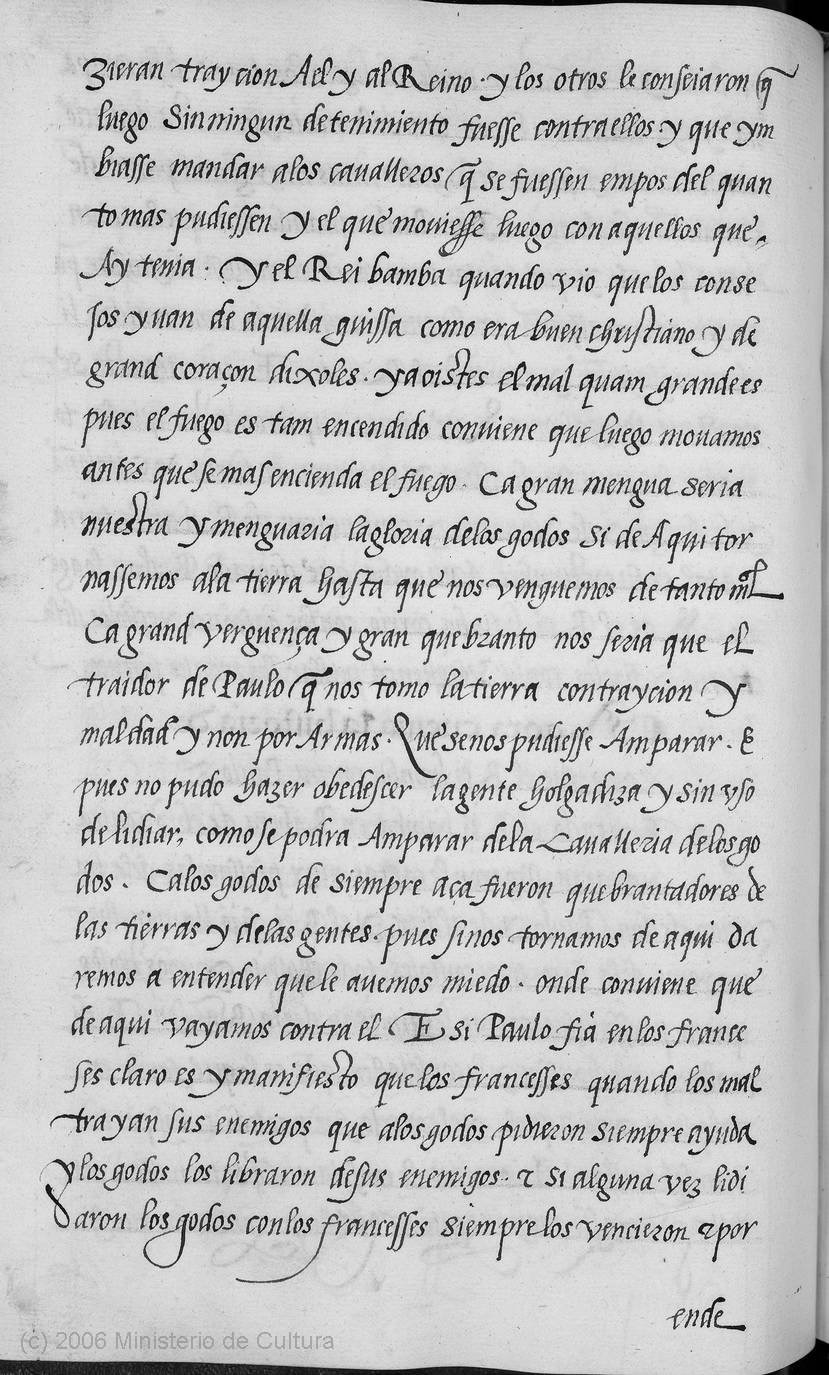 zieran traycion Ael y al Reino · y los otros le conseiaron q̃
luego Sin ningun detenimiento fuesse contra ellos · y que ym
biasse mandar a los cavalleros q̃ se fuessen empos del quan
to mas pudiessen y el que moviesse luego con aquellos que
Ay tenia · Y el Rei bamba quando vio que los conse
jos yuan de aquella guissa como era buen christiano y de
grand coraçon dixoles · ya oistes el mal quam grande es
pues el fuego es tam encendido conviene que luego movamos
antes que se mas encienda el fuego · Ca gran mengua seria
nuestra y menguaria la gloria de los godos si de Aqui tor
nassemos a la tierra hasta que nos venguemos de tanto ml
Ca grand verguença y gran quebranto nos seria que el
traidor de Paulo q̃ nos tomo la tierra con traycion y
maldad y non por Armas · Que se nos pudiesse Amparar · E
pues no pudo hazer obedescer la gente holgadiza y sin vso
de lidiar, como se podra Amparar de la Cavalleria de los go
dos · Ca los godos de siempre aca fueron quebrantadores de
las tierras y de las gentes · pues si nos tornamos de aqui da
remos a entender que le avemos miedo · onde conviene que
de aqui vayamos contra el E si Paulo fia en los france
ses claro es y manifiesto que los francesses quando los mal
trayan sus enemigos que a los godos pidieron siempre ayuda
y los godos los libraron de sus enemigos · τ si alguna vez lidi
daron los godos con los francesses siempre los vencieron τ por
ende
(c) 2006 Ministerio de Cultura